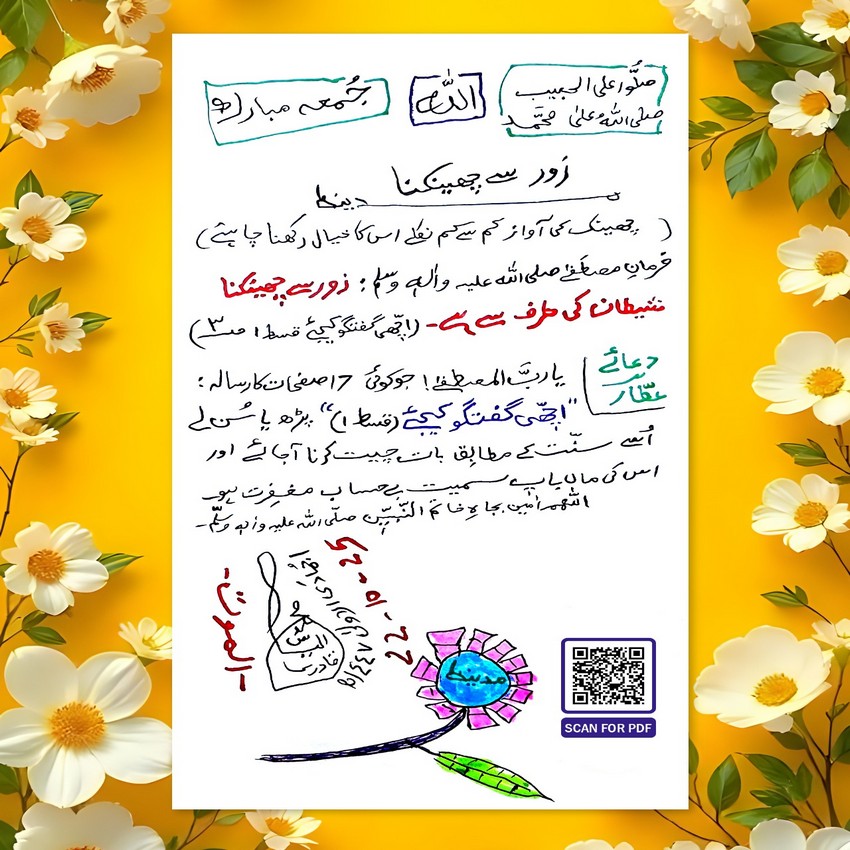 صلُّوا علی الحبیب
صلی اللہُ علیٰ محمَّد
اللہ
جُمعہ مبارک
زور سے چھینکنا
مدینہ
(چھینک کی آواز کم سے کم نکلے اس کا خیال رکھنا چاہئے)
فرمانِ مصطَفےٰ صلی اللہ علیہ واٰلہٖ وسلم: زور سے چھینکنا
شیطان کی طرف سے ہے۔ (اچّھی گفتگو کیجئے قسط ۱ صـ۳)
دعائے
عطّار
یاربَّ المصطَفےٰ! جو کوئی 17 صفحات کا رسالہ:
"اچّھی گفتگو کیجئے (قسط ۱)" پڑھ یا سُن لے
اُسے سنّت کے مطابِق بات چیت کرنا آجائے اور
اس کی ماں باپ سمیت بے حساب مغفِرت ہو۔
اٰمین بجاہِ خاتمِ النَّبِیّٖن صلّی اللہ علیہ واٰلہٖ وسلَّم۔
الموت
22-05-25
مدینہ
SCAN FOR PDF